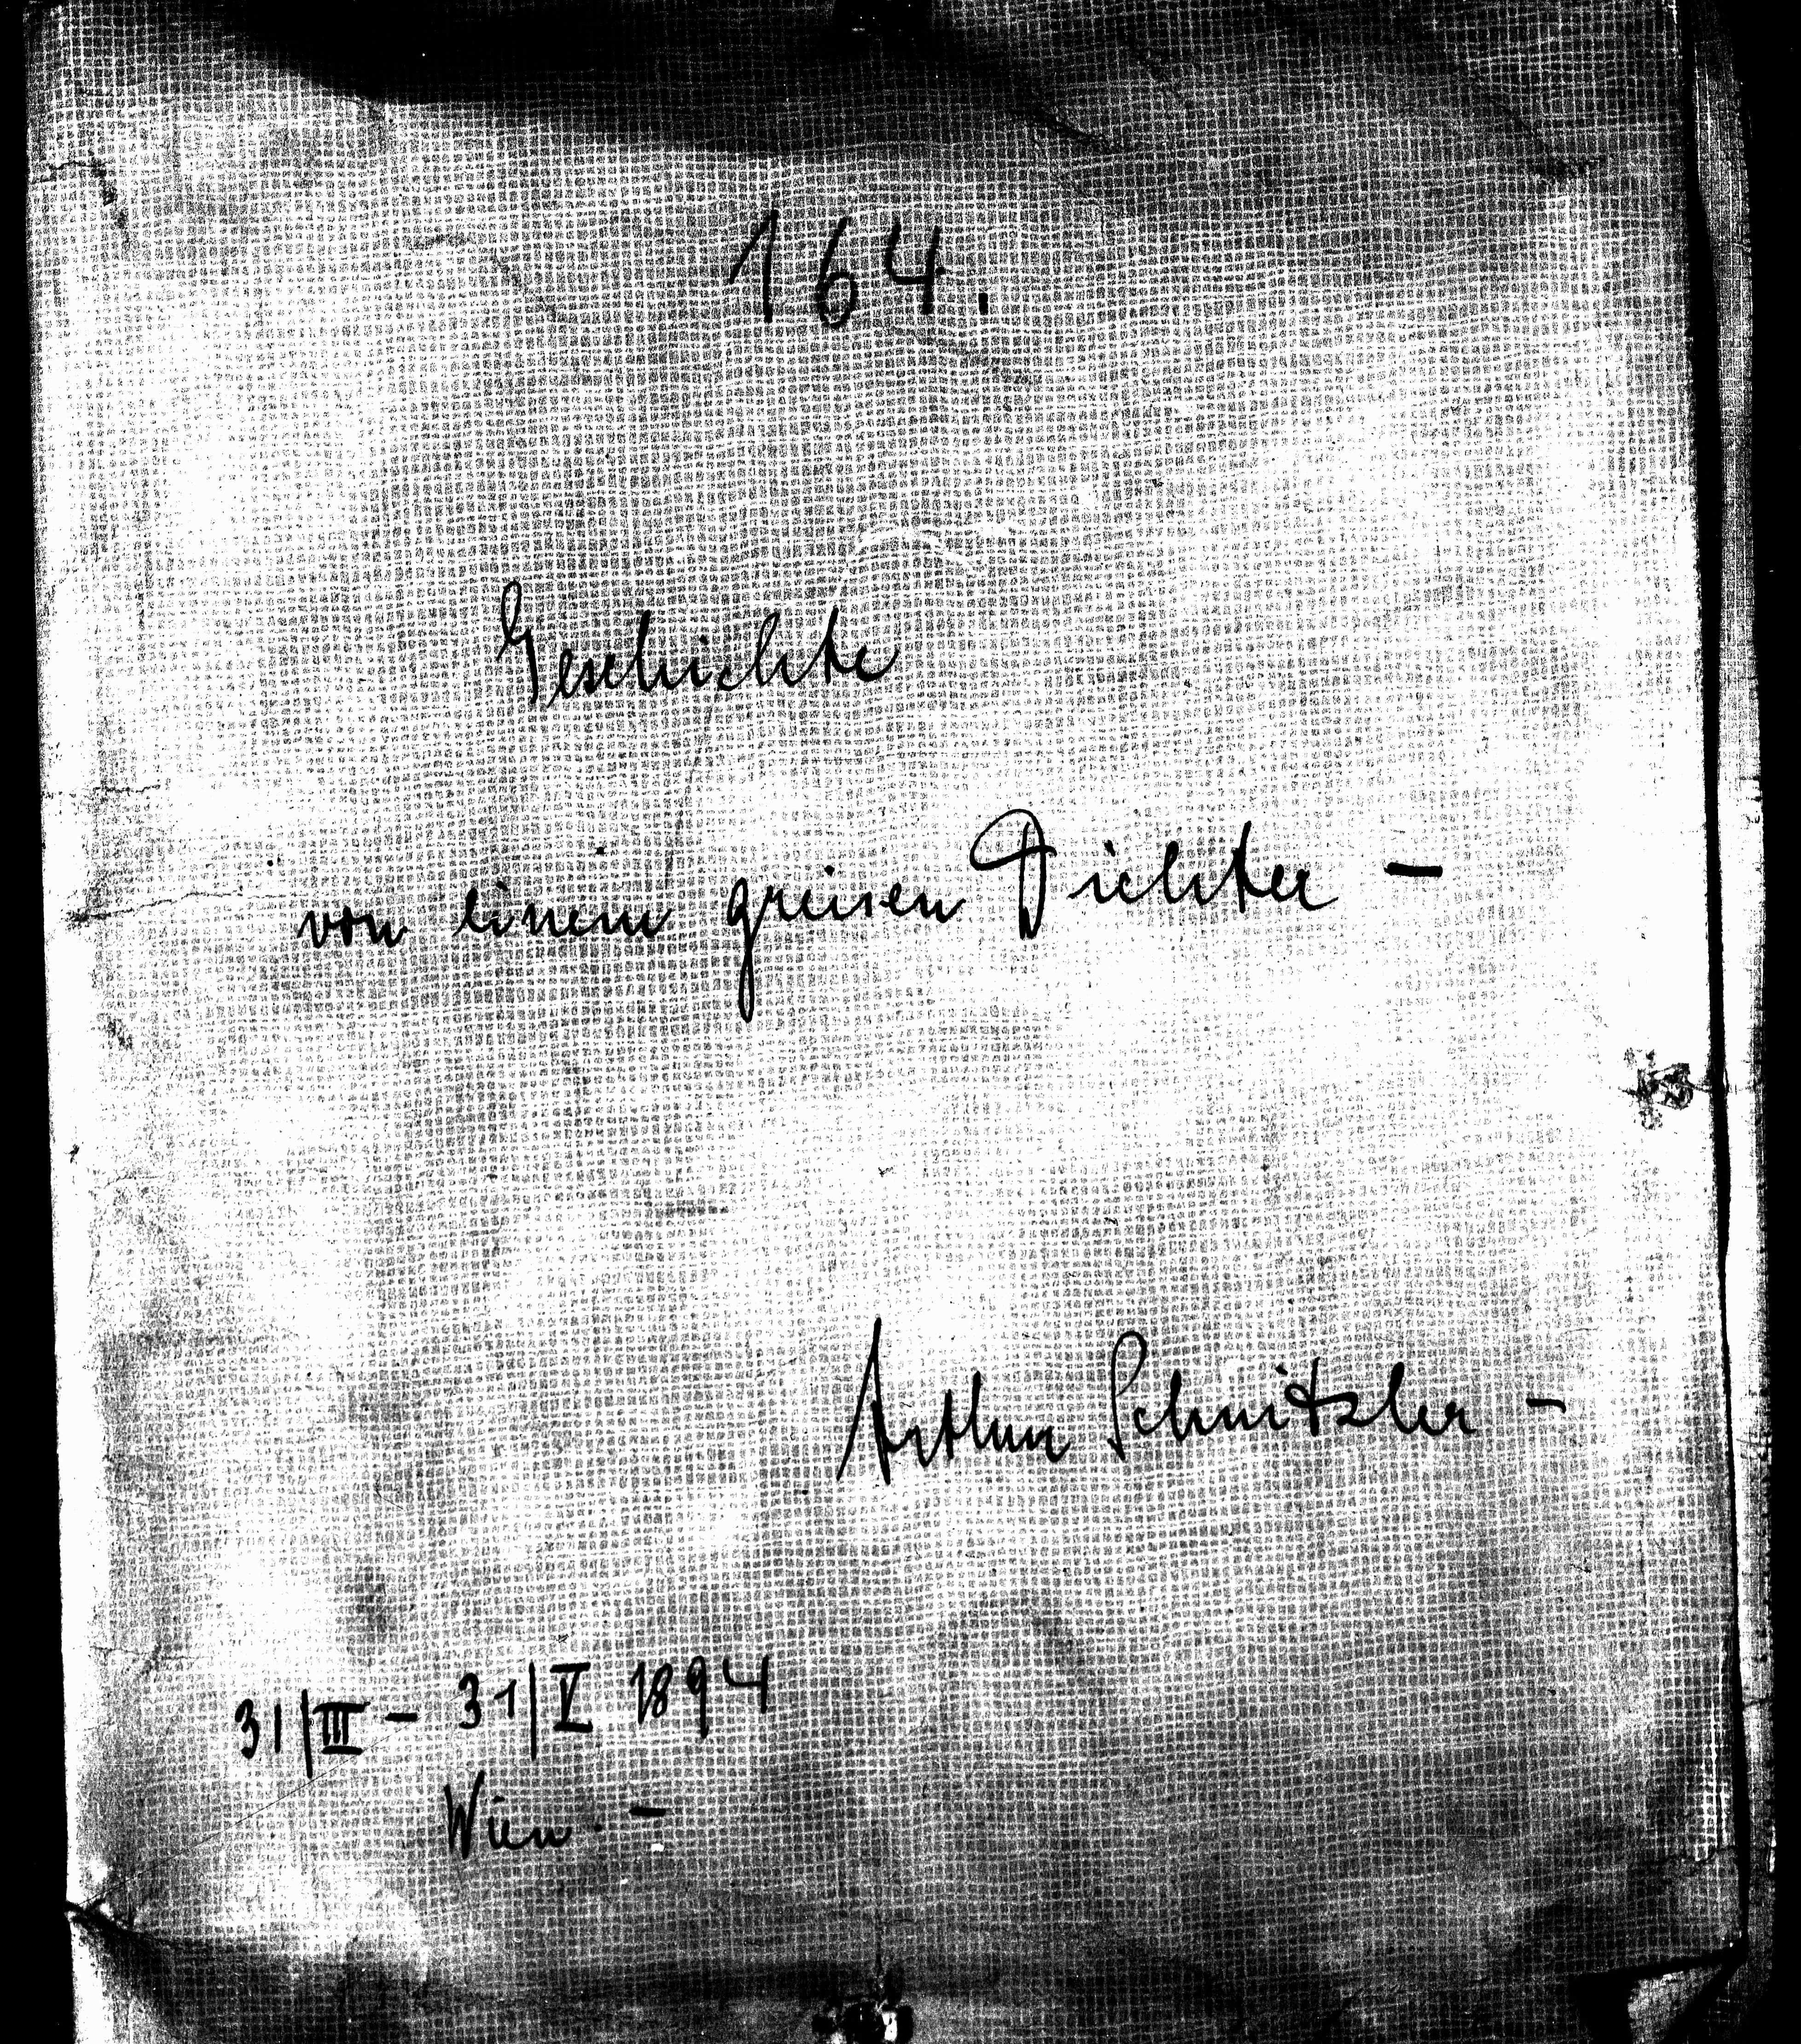 164.
Geschichte
von einem greisen Dichter –
Arthur Schnitzler –
31|III – 31|V 1894
Wien. –